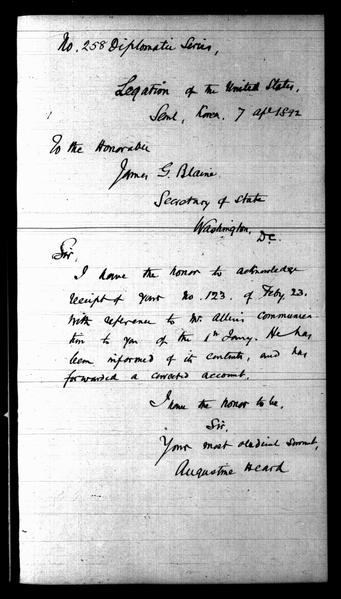 No. 258 Diplomatic Series,
Legation of the United States,
Seoul, Korea. 7 Apl 1892
To the Honorable
James G. Blaine
Secretary of State
Washington,
D.C.
Sir,
I have the honor to acknowledge
receipt of your No. 123. of Feby. 23.
with reference to Mr. Allen's communica
tion to you of the 1st Jany. He has
been informed of its contents, and has
forwarded a corrected account.
I have the honor to be.
Sir.
Your most obedient servant,
Augustine Heard